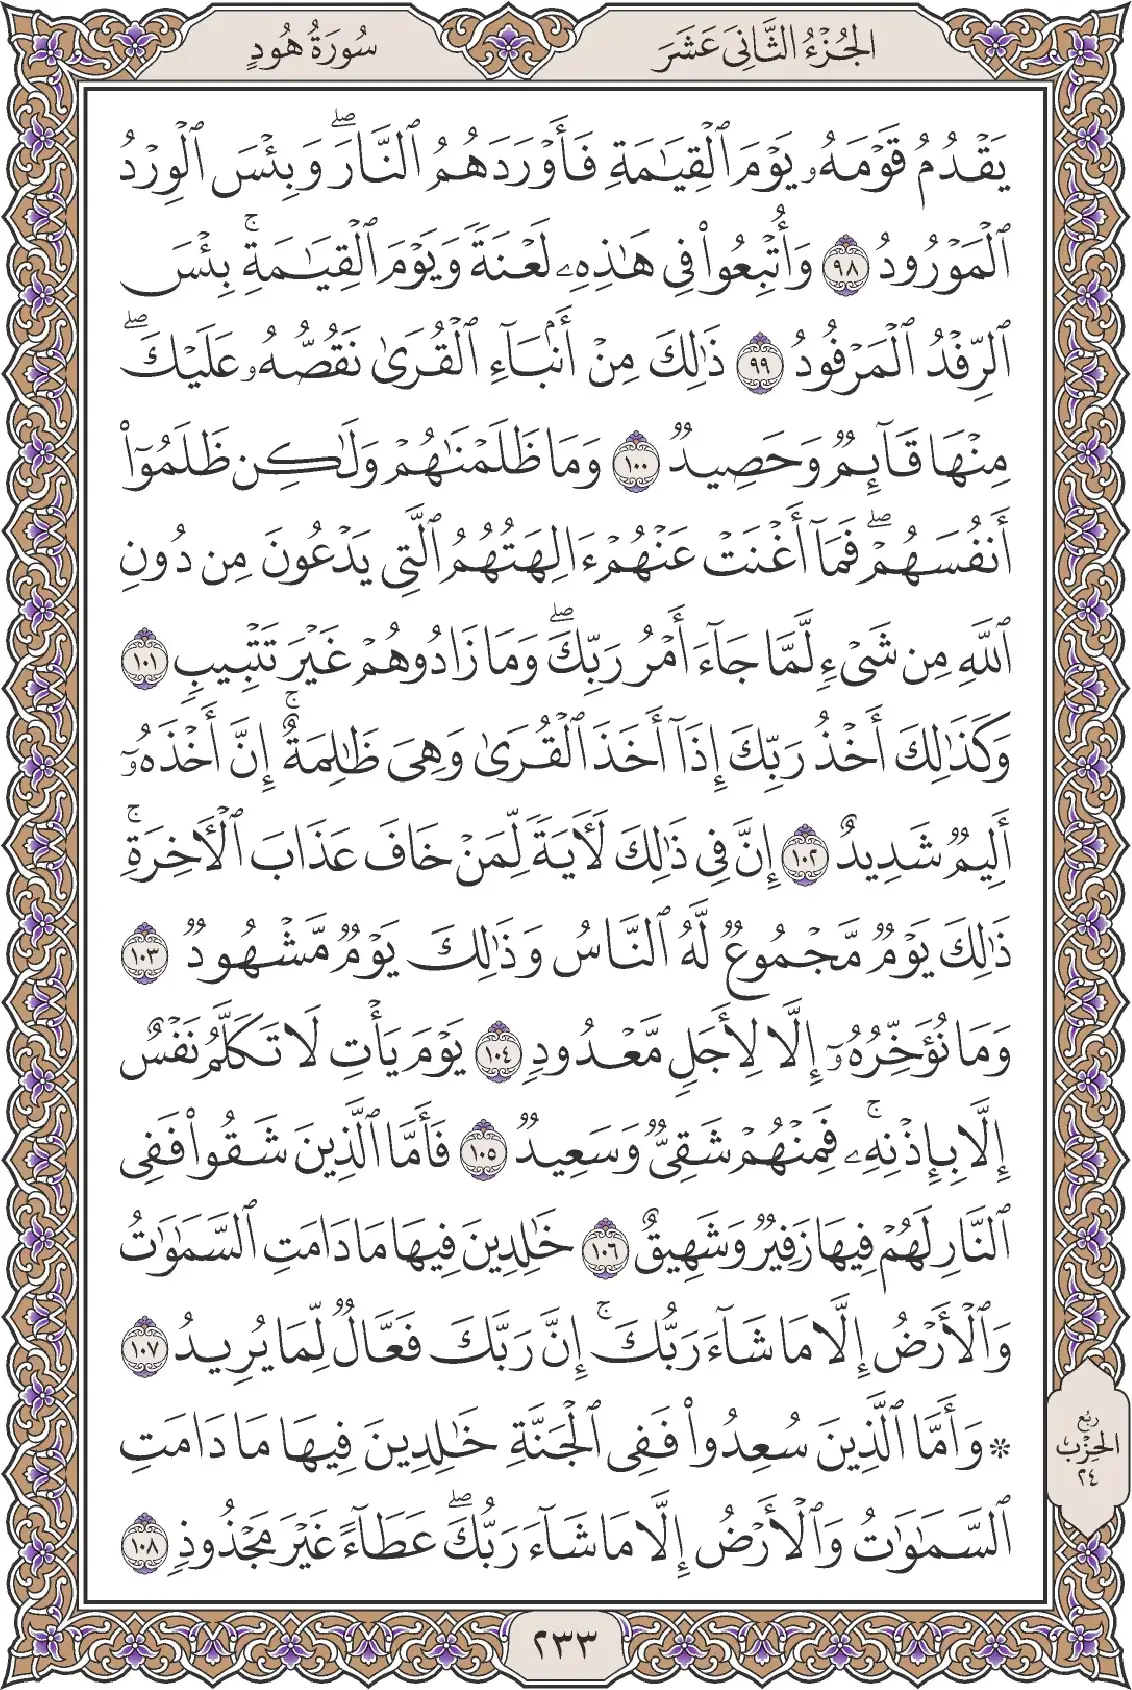 الجُزْءُ الثَّانِي عَشَرَ
سُورَةُ هُودٍ
يَقْدُمُ قَوْمَهُۥ يَوْمَ ٱلْقِيَٰمَةِ فَأَوْرَدَهُمُ ٱلنَّارَۖ وَبِئْسَ ٱلْوِرْدُ
ٱلْمَوْرُودُ ٩٨ وَأُتْبِعُوا۟ فِى هَٰذِهِۦ لَعْنَةً وَيَوْمَ ٱلْقِيَٰمَةِۚ بِئْسَ
ٱلرِّفْدُ ٱلْمَرْفُودُ ٩٩ ذَٰلِكَ مِنْ أَنۢبَآءِ ٱلْقُرَىٰ نَقُصُّهُۥ عَلَيْكَۖ
مِنْهَا قَآئِمٌ وَحَصِيدٌ ١٠٠ وَمَا ظَلَمْنَٰهُمْ وَلَٰكِن ظَلَمُوٓا۟
أَنفُسَهُمْۖ فَمَآ أَغْنَتْ عَنْهُمْ ءَالِهَتُهُمُ ٱلَّتِى يَدْعُونَ مِن دُونِ
ٱللَّهِ مِن شَىْءٍ لَّمَّا جَآءَ أَمْرُ رَبِّكَۖ وَمَا زَادُوهُمْ غَيْرَ تَتْبِيبٍ ١٠١
وَكَذَٰلِكَ أَخْذُ رَبِّكَ إِذَآ أَخَذَ ٱلْقُرَىٰ وَهِىَ ظَٰلِمَةٌۚ إِنَّ أَخْذَهُۥٓ
أَلِيمٌ شَدِيدٌ ١٠٢ إِنَّ فِى ذَٰلِكَ لَءَايَةً لِّمَنْ خَافَ عَذَابَ ٱلْءَاخِرَةِۚ
ذَٰلِكَ يَوْمٌ مَّجْمُوعٌ لَّهُ ٱلنَّاسُ وَذَٰلِكَ يَوْمٌ مَّشْهُودٌ ١٠٣
وَمَا نُؤَخِّرُهُۥٓ إِلَّا لِأَجَلٍ مَّعْدُودٍ ١٠٤ يَوْمَ يَأْتِ لَا تَكَلَّمُ نَفْسٌ
إِلَّا بِإِذْنِهِۦۚ فَمِنْهُمْ شَقِىٌّ وَسَعِيدٌ ١٠٥ فَأَمَّا ٱلَّذِينَ شَقُوا۟ فَفِى
ٱلنَّارِ لَهُمْ فِيهَا زَفِيرٌ وَشَهِيقٌ ١٠٦ خَٰلِدِينَ فِيهَا مَا دَامَتِ ٱلسَّمَٰوَٰتُ
وَٱلْأَرْضُ إِلَّا مَا شَآءَ رَبُّكَۚ إِنَّ رَبَّكَ فَعَّالٌ لِّمَا يُرِيدُ ١٠٧
۞ وَأَمَّا ٱلَّذِينَ سُعِدُوا۟ فَفِى ٱلْجَنَّةِ خَٰلِدِينَ فِيهَا مَا دَامَتِ
ٱلسَّمَٰوَٰتُ وَٱلْأَرْضُ إِلَّا مَا شَآءَ رَبُّكَۖ عَطَآءً غَيْرَ مَجْذُوذٍ ١٠٨
رُبُع
الحِزْب
٢٤
٢٣٣